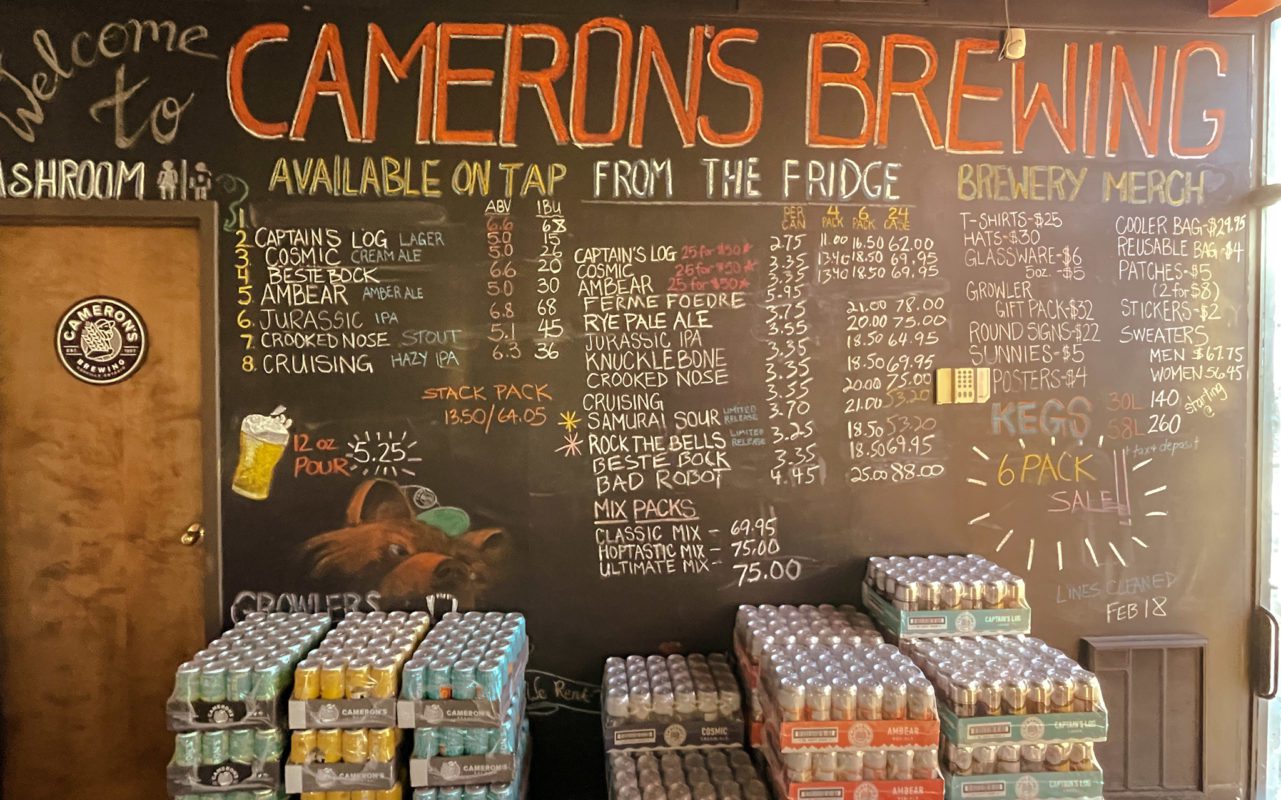 Welcome to
CAMERON'S BREWING
ASHROOM
AVAILABLE ON TAP
ABV IBU
1. 6.6 68
2. CAPTAINS LOG LAGER 5.0 15
3. COSMIC CREAM ALE 5.0 26
4. BESTE BOCK 6.6 20
5. AMBEAR AMBER ALE 5.0 30
6. JURASSIC IPA 6.8 68
7. CROOKED NOSE STOUT 5.1 45
8. CRUISING HAZY IPA 6.3 36
STACK PACK
13.50/64.05
12 oz POUR 5.25
GROWLERS
FROM THE FRIDGE
PER CAN 4 PACK 6 PACK 24 CASE
CAPTAIN'S LOG 25 for $50* 2.75 11.00 16.50 62.00
COSMIC 25 for $50* 3.35 13.40 18.50 69.95
AMBEAR 25 for $50* 3.35 13.40 18.50 69.95
FERME FOEDRE 5.95
RYE PALE ALE 3.75 21.00 78.00
JURASSIC IPA 3.55 20.00 75.00
KNUCKLEBONE 3.35 18.50 64.95
CROOKED NOSE 3.35 18.50 69.95
CRUISING 3.55 20.00 75.00
SAMURAI SOUR LIMITED RELEASE 3.70 21.00 53.20
ROCK THE BELLS LIMITED RELEASE 3.25 18.50 53.20
BESTE BOCK 3.35 18.50 69.95
BAD ROBOT 4.45 25.00 88.00
MIX PACKS
CLASSIC MIX - 69.95
HOPTASTIC MIX - 75.00
ULTIMATE MIX - 75.00
BREWERY MERCH
T-SHIRTS-$25
HATS-$30
GLASSWARE-$6
5oz. -$5
GROWLER
GIFT PACK-$32
ROUND SIGNS-$22
SUNNIES-$5
POSTERS-$4
COOLER BAG-$29.95
REUSABLE BAG-$4
PATCHES-$5
(2 for $8)
STICKERS-$2
SWEATERS
MEN $67.75
WOMEN 56.45
KEGS 30L 140
58L 260
starting @
+ tax + deposit
6 PACK
SALE!
LINES CLEANED
FEB 18
CAMERON'S
BREWING
CAMERON'S
CAMERON'S
CAMERON'S
CAMERON'S
COSMIC
AMBEAR
AMBEAR
CAPTAIN'S LOG
CAPTAIN'S LOG
CAPTAIN'S LOG